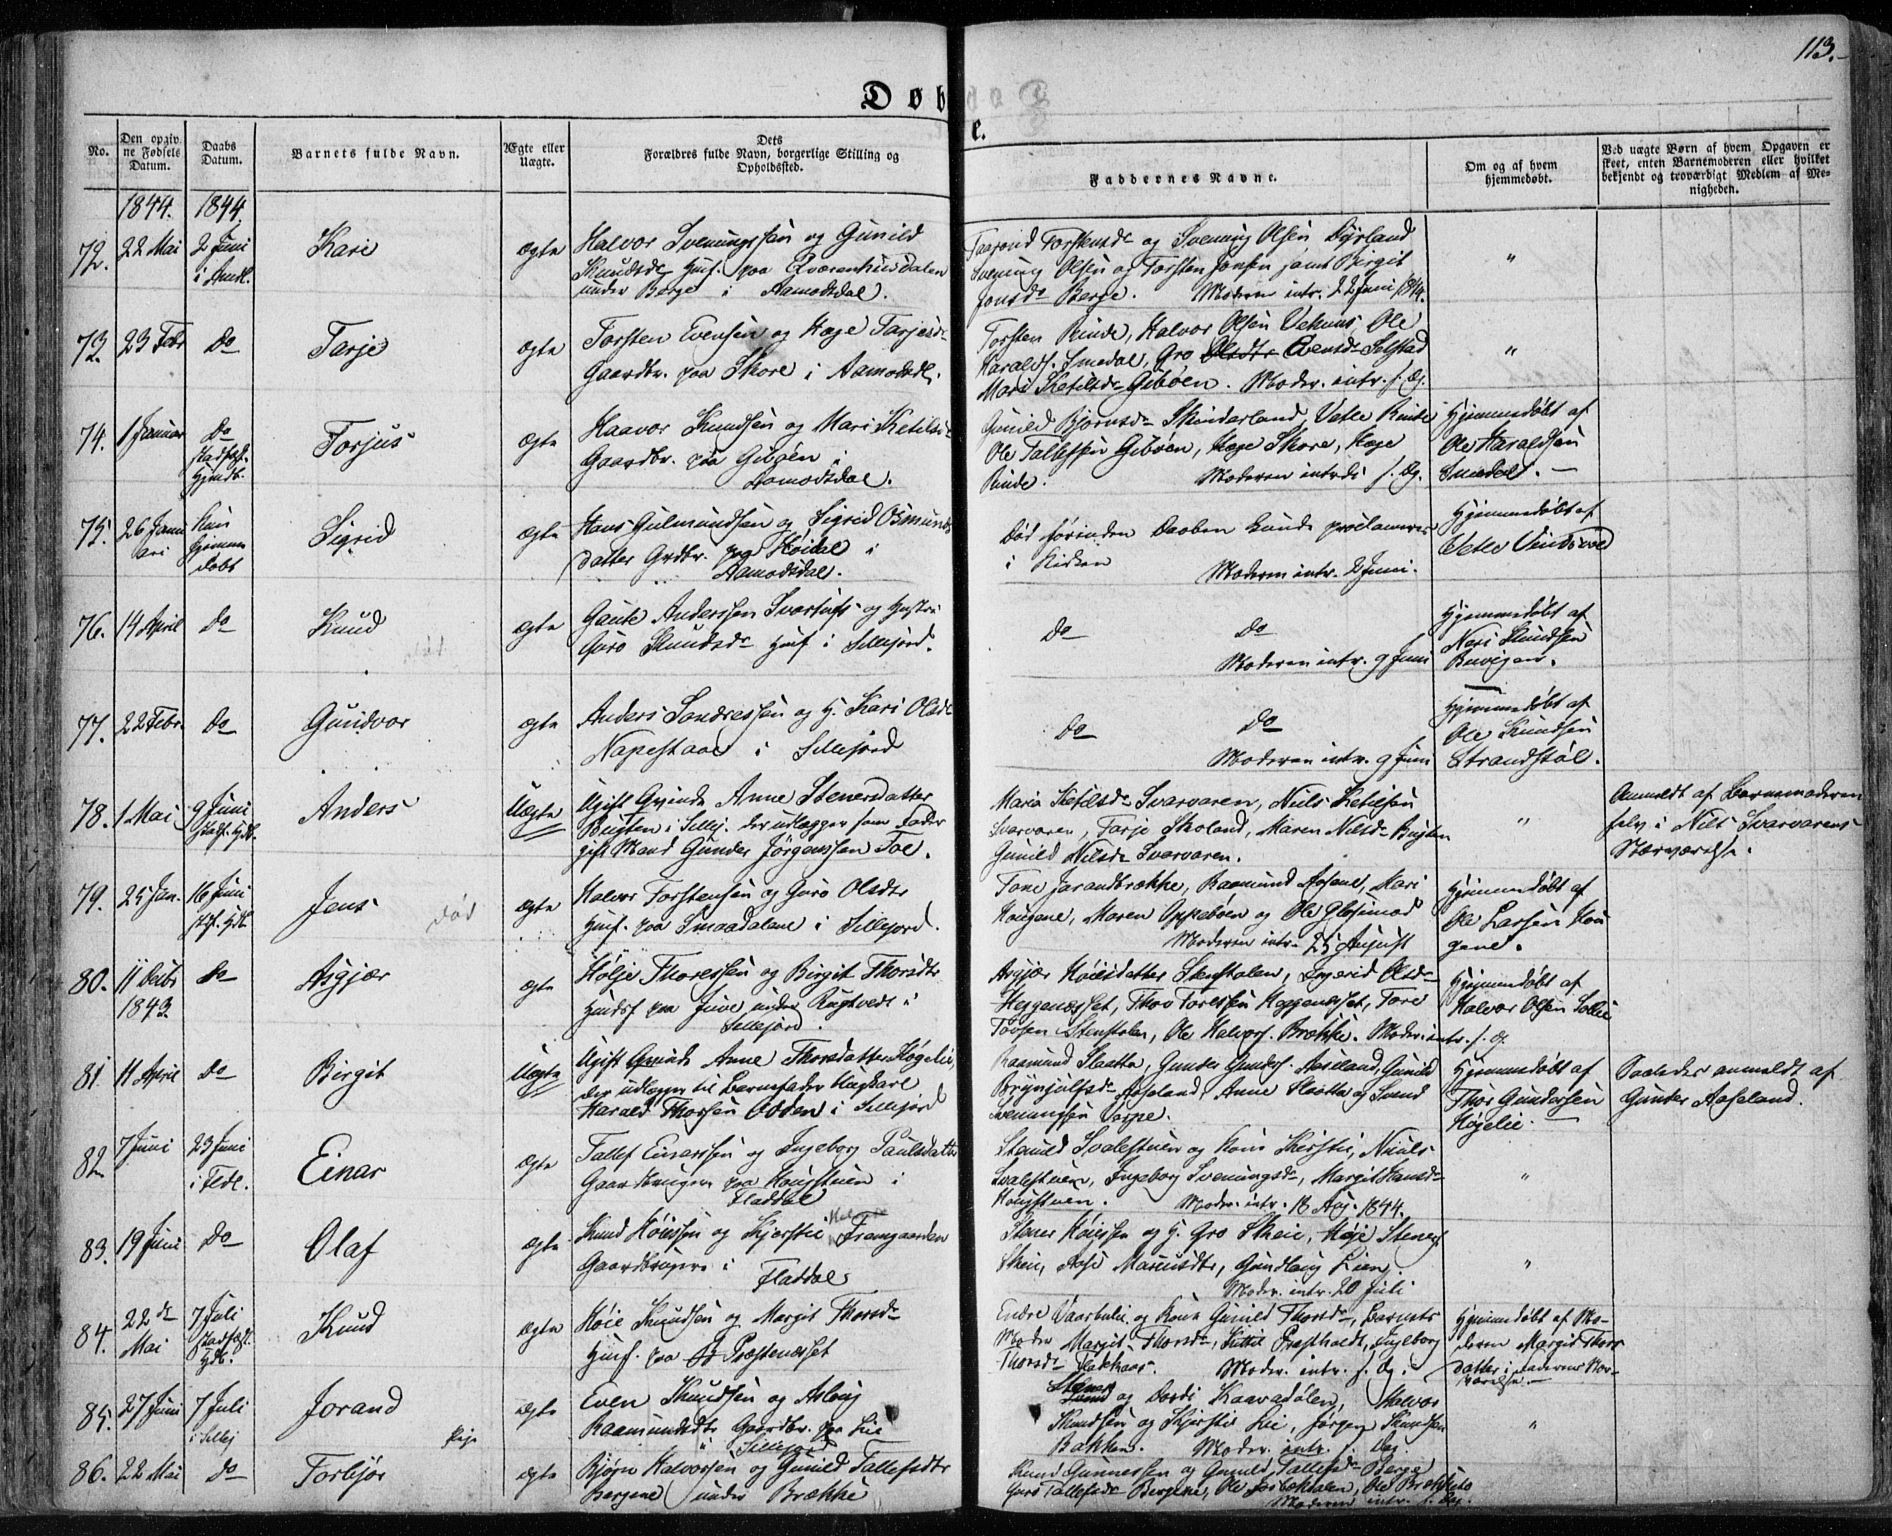 113.
Døbte.
No.
Den opgivne Fødsels Datum.
Daabs Datum.
Barnets fulde Navn.
Ægte eller Uægte.
Dets Forældres fulde Navn, borgerlige Stilling og Opholdssted.
Faddernes Navne.
Om og af hvem hjemmedøbt.
Ved uægte Børn af hvem Opgaven er skeet, enten Barnemoderen eller hvilket bekjendt og troværdigt Medlem af Menigheden.
1844. 1844.
72. 22 Mai 2 Juni Kari ægte
Halvor Svenungssen og Gunild
Knudsdr. Huf. paa
under Berge i Aamodsdal.
Taarond Torstensdr og Svenung Olsen
Svenung Olsen og Torsten Jonsen samt Birgit
Jonsdr Berge. Moderen intr. 22 Juni 1844.
"
73. 23 Febr Do Tarje ægte
Torsten Evensen og Hæge Tarjesdr
Gaardbr. paa Skore i Aamodsdl.
Torsten Rinde, Halvor Olsen Vehuus, Ole
Haralds. Smedal, Gro Olsdtr Evensdr Selstad
Mari Ketilsdr Gibøen. Moder. intr. s. Dg.
"
74. 1 Januar Do stadfæst. Hjmdb. Torjus ægte
Haavor Knudsen og Mari Ketilsdr
Gaardbr. paa Gibøen i
Aamodsdal.
Gunild Bjørnsdr Skinderland, Vetle Rinde
Ole Tallefsen Gibøen, Hæge Skore, Hæge
Rinde. Moderen introd. s. Dg.
Hjemmedøbt af
Ole Haraldsen
Smedal. —
75. 26 Januari kun hjemmedøbt Sigrid ægte
Hans Gulmundsen og Sigrid Osmunds
datter Grdbr. paa Høidal i
Aamodsdal.
Død førinden Daaben kunde proclameres
i Kirken Moderen intr. 2 Juni.
Hjemmedøbt af
Vetle
76. 14 April Do Knud ægte
Gaute Anderssen og Hustru
Guro Knudsdr Huf i Sillejord.
Do Do
Moderen intr. 9 Juni
Hjemmedøbt af
Neri Knudsen
77. 22 Febr. Do Gundvor ægte
Anders Sondressen og H. Kari Olsdr
Napestaae i Sillejord
Do Do
Moderen intr. 9 Juni
Hjemmedøbt af
Ole Knudsen
Strandstøl.
78. 1 Mai 9 Juni stadf. Hjdb. Anders Uægte
Ugift Qvinde Anne Stenersdatter
Bugten i Sillej. der udlægger som Fader
gift Mand Gunder Jørgenssen Foe.
Maria Ketilsdr Svarvaren, Niels Ketilsen
Svarvaren, Tarje Skoland, Maren Nilsdr Bugten
Gunild Nilsdr Svarvaren.
"
Anmeldt af Barnemoderen
selv i Nils Svarvarens
Nærværelse.
79. 25 Jan. 16 Juni stf. Hjdb. Jens død ægte
Halvor Torstensen og Guro Olsdtr
Huf. paa Smaadalene i Sillejord.
Tone Jarandbrække, Raamund Aasene, Mari
Haugene, Maren Oppebøen og Ole Glosimod
Moderen intr. 25 August
Hjemmedøbt af
Ole Larsen Hau
gene.
80. 11 Decbr 1843 Do Asgjær ægte
Hølje Thoressen og Birgit Thorsdtr
Huusf paa Juve under Rugtvedt i
Sillejord.
Asgjær Høiesdatter Stenstølen, Ingerid Olsdr
Heggenæsset, Thov Toressen Heggenæsset, Tore
Tovsen Stenstølen, Ole Halvors. Brække. Moder. intr. s. Dg
Hjemmedøbt af
Halvor Olsen Solli
81. 11 April Do Birgit Uægte
Ugift Qvinde Anne Thorsdatter Høgelie,
der udlægger til Barnefader Ungkarl
Harald Thorsen Odden i Sillejord
Raamund Slaatta, Gunder Gunders. Aaseland, Gunild
Brynjulfsdr Aaseland, Anne Slaatta og Svend
Svenungsen
Hjemmedøbt af
Thor Gundersen
Høgelie. —
Saaledes anmeldt af
Gunder Aaseland.
82. 7 Juni 23 Juni i Fldl. Einar ægte
Tallef Einarssen og Ingeborg Paulsdatter
Gaardbrugere paa Haugstuen i
Fladdal
Svalestuen og Kone Kirstie, Niels
Svalestuen, Ingeborg Svenungsdr, Margit Hansdr
Haugstuen. Moder. intr. 18 Aug. 1844.
"
83. 19 Juni Do Olaf ægte
Knud Høiessen og Kjerstie Framgaarden
Gaardbrugere i Fladdal
Stener Høiessen og H. Gro Skeie, Høje Steners
Skeie, Aase Marcusdtr, Gundlaug Lien.
Moder. intr. 20 Juli
"
84. 22de Mai 7 Juli stadfæst. Hjdb. Knud ægte
Høie Knudsen og Margit Thorsdr
Huf. paa Præstenæsset
Endre Vaarlie og Kone Gunild Thorsdr, Barnets
Moder Margit Thorsdr, Kittil Præsthaldt, Ingeborg
Thorsdr Flakhaas. Moder. intr. s. Dg.
Hjemmedøbt af Mo-
deren Margit Thors
datter i Faderens Nær-
værelse. —
85. 27 Juni 7 Juli i Sillej Jorand ægte
Even Knudsen og Aslaug
Raamundsdtr Gaardbr. paa Lie
i Sillejord
Stener og Dordi Kaavadølen, Halvor
Knudsen og Kjerstie Lie, Jørgen Knudsen
Bakken. Moder. intr. s. Dag.
"
86. 22 Mai Do Torbjør Pige ægte
Bjørn Halvorsen og Gunild Tallefsdtr
Bergene under Brække
Knud Gunnersen og Gunild Tallefsdr Berge
Guro Tallefsdr Bergene, Ole
Moderen intr. s. Dag.